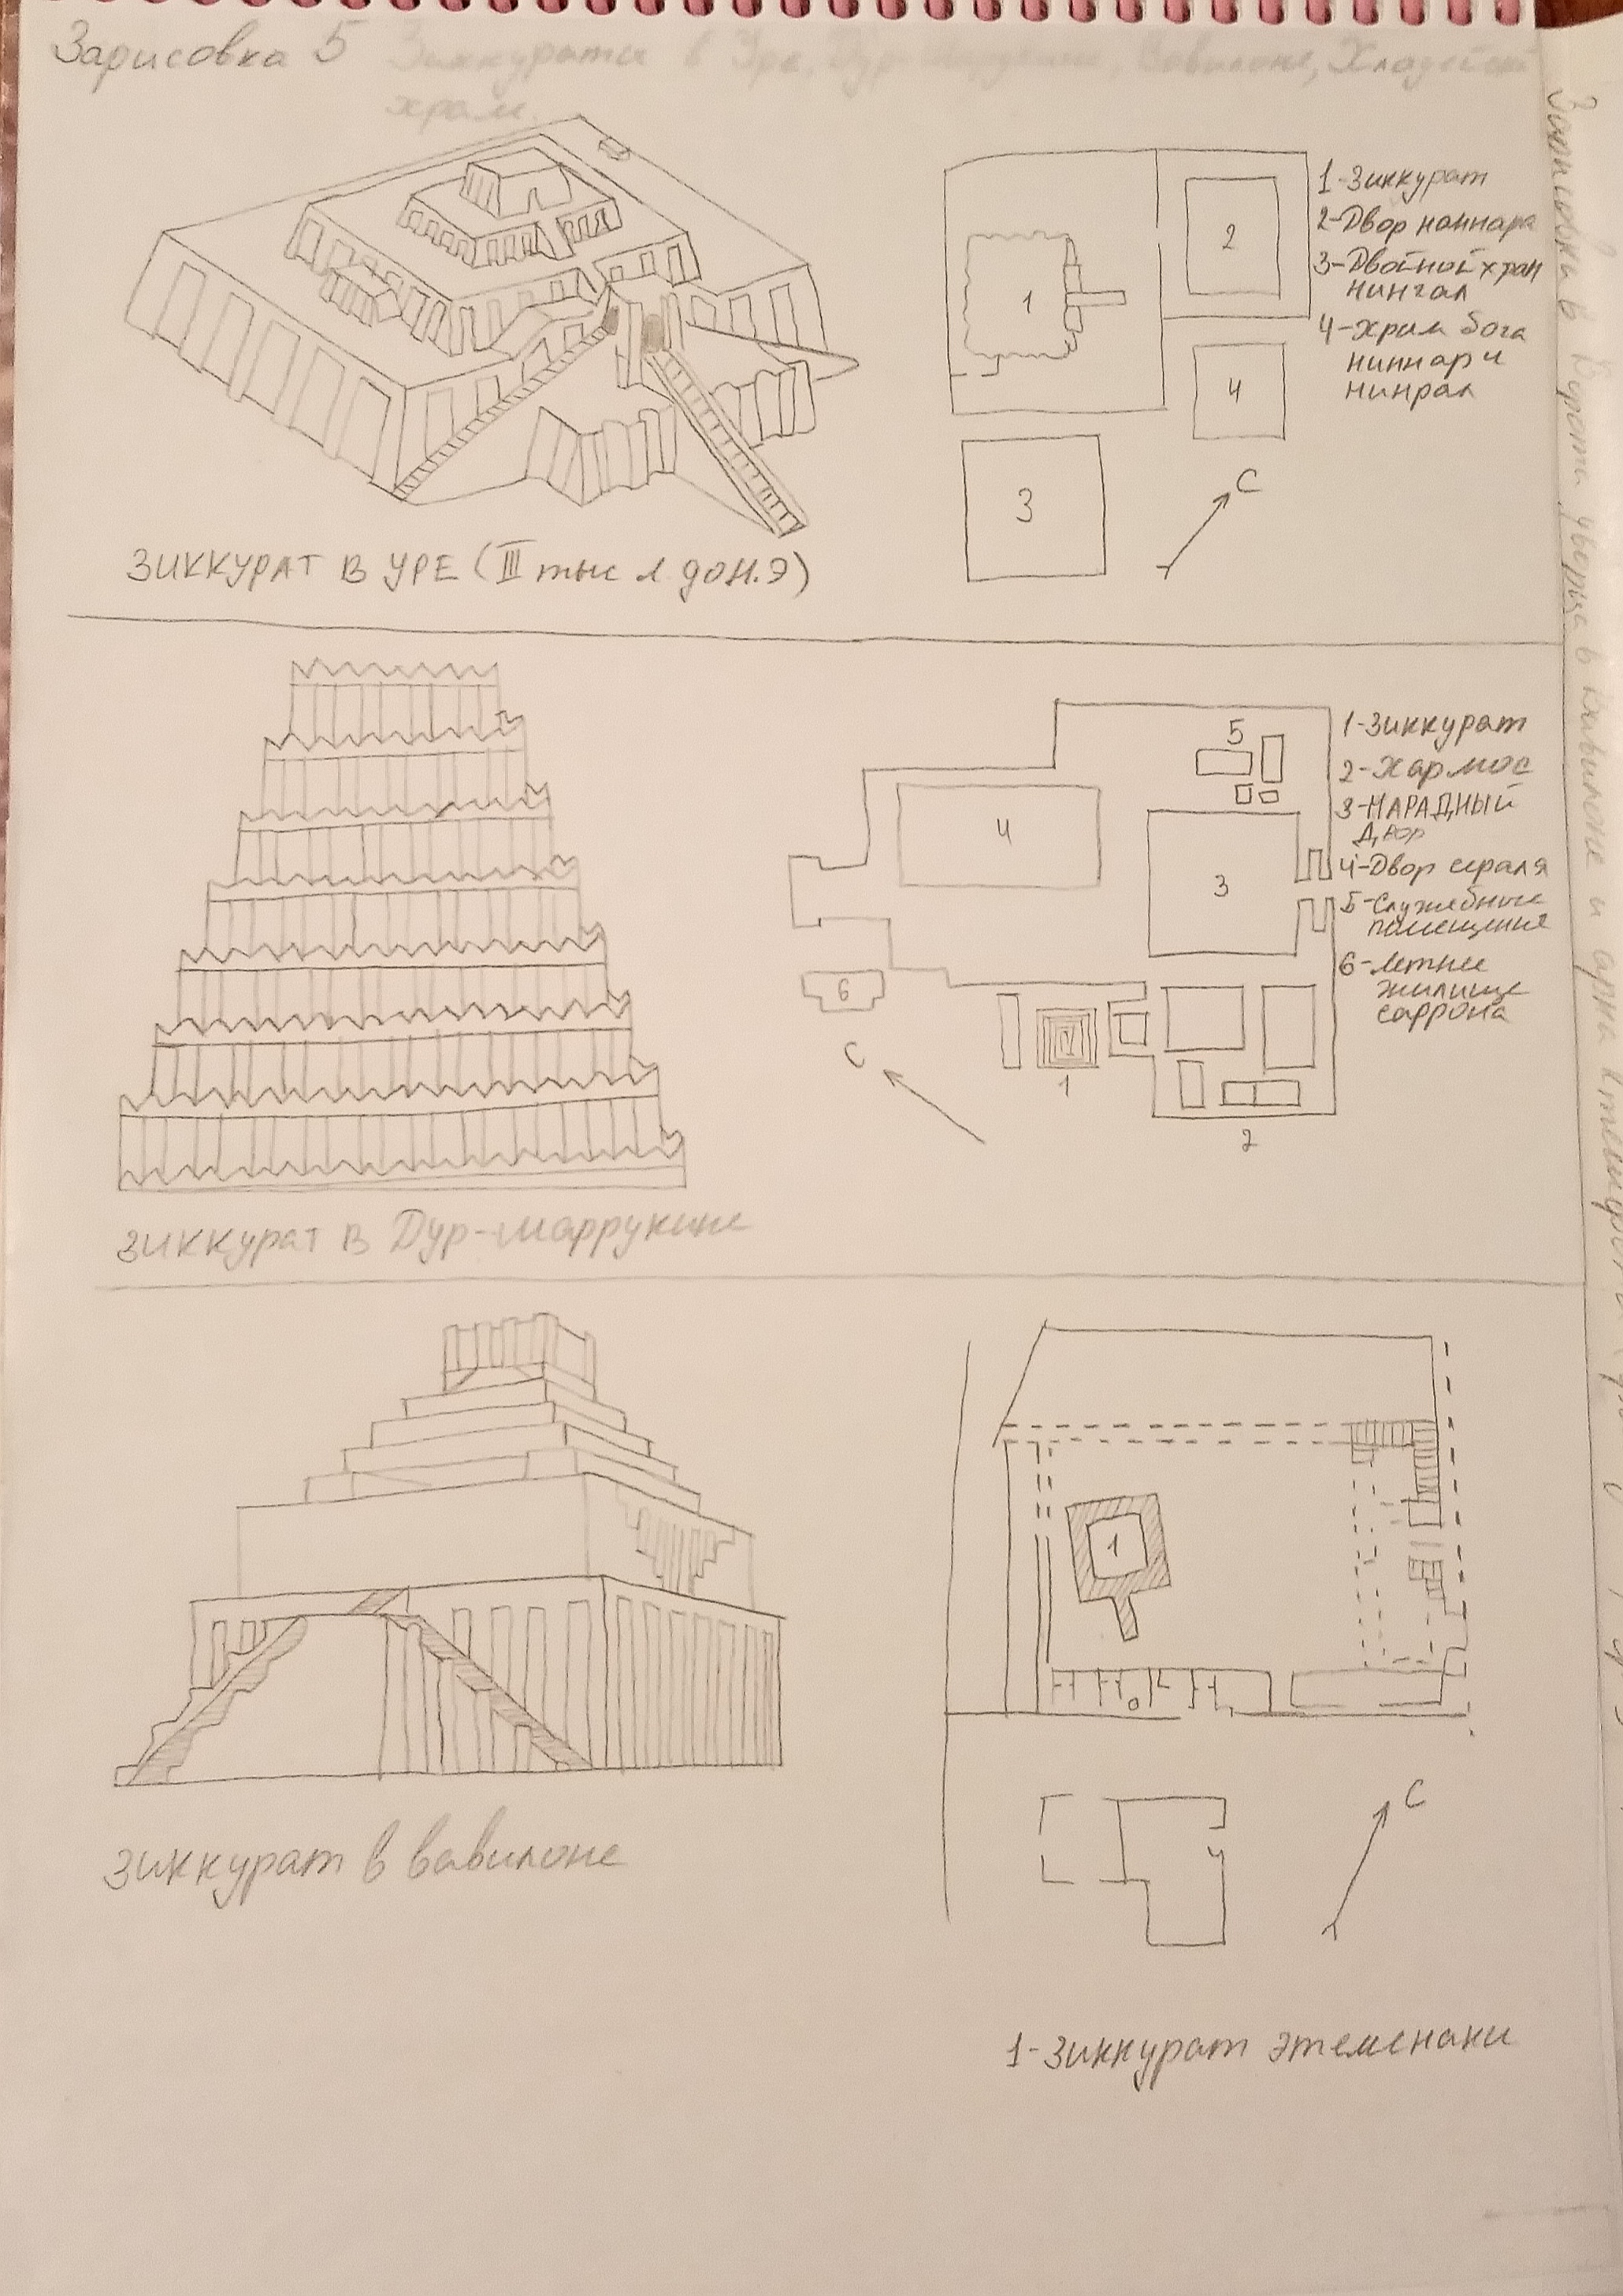 Зарисовка 5 Зиккураты в Уре, Дур-Шаррукине, Вавилоне,
храм.
1-Зиккурат
2-Двор наннара
3-Двойной храм
нингал
4-храм бога
ниннар и
нинрал
1
2
3
4
С
ЗИККУРАТ В УРЕ (III тыс л до н.э)
5
4
3
6
1
2
С
1-Зиккурат
2-Хармос
3-ПАРАДНЫЙ
Двор
4-Двор сераля
5-Служебные
помещения
6-летнее
жилище
саррона
ЗИККУРАТ В Дур-шаррукине
1
С
зиккурат в вавилоне
1-зиккурат этеменаки
Зарисовка в
в вавилоне и арка